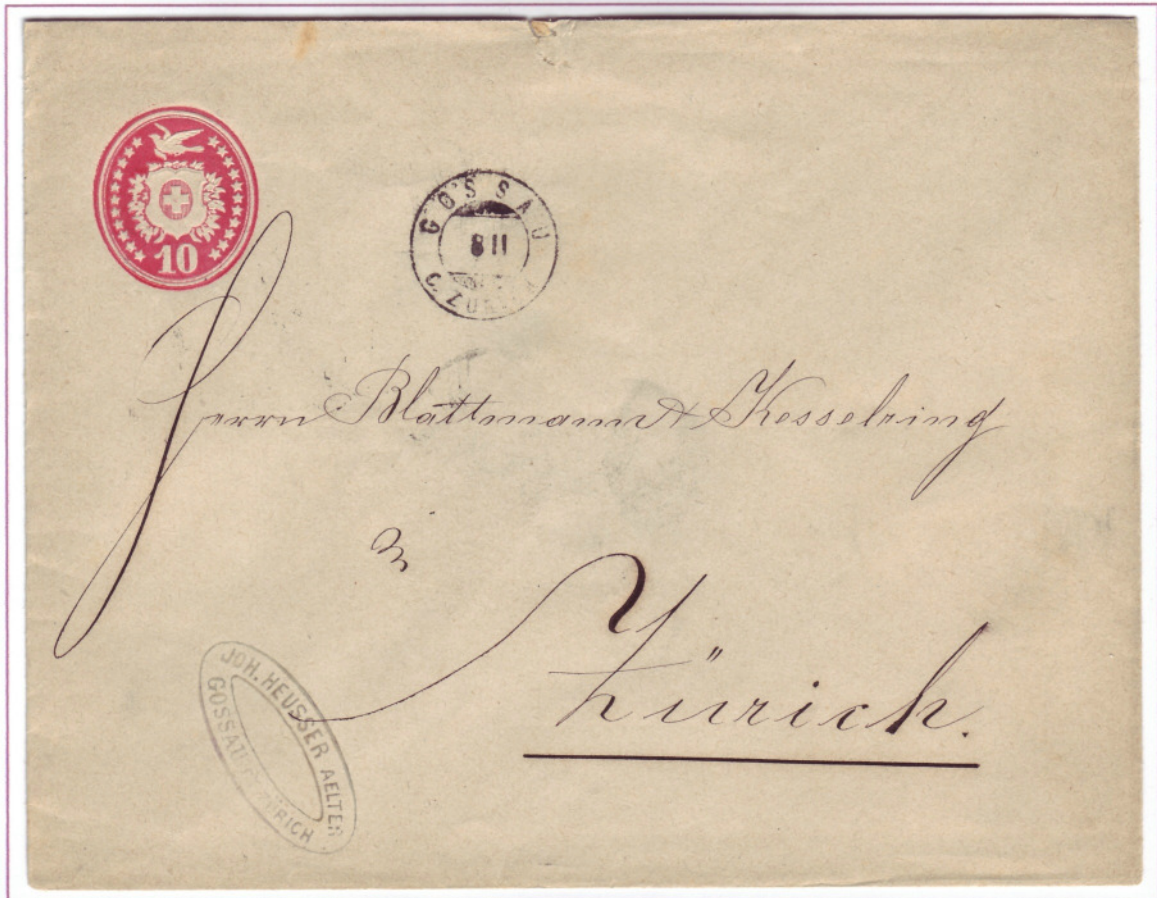 10
GOSSAU
8 II
C. ZÜRICH
Herrn Blattmann & Kesselring
in
Zürich.
JOH. HEUSSER AELTER
GOSSAU ZÜRICH